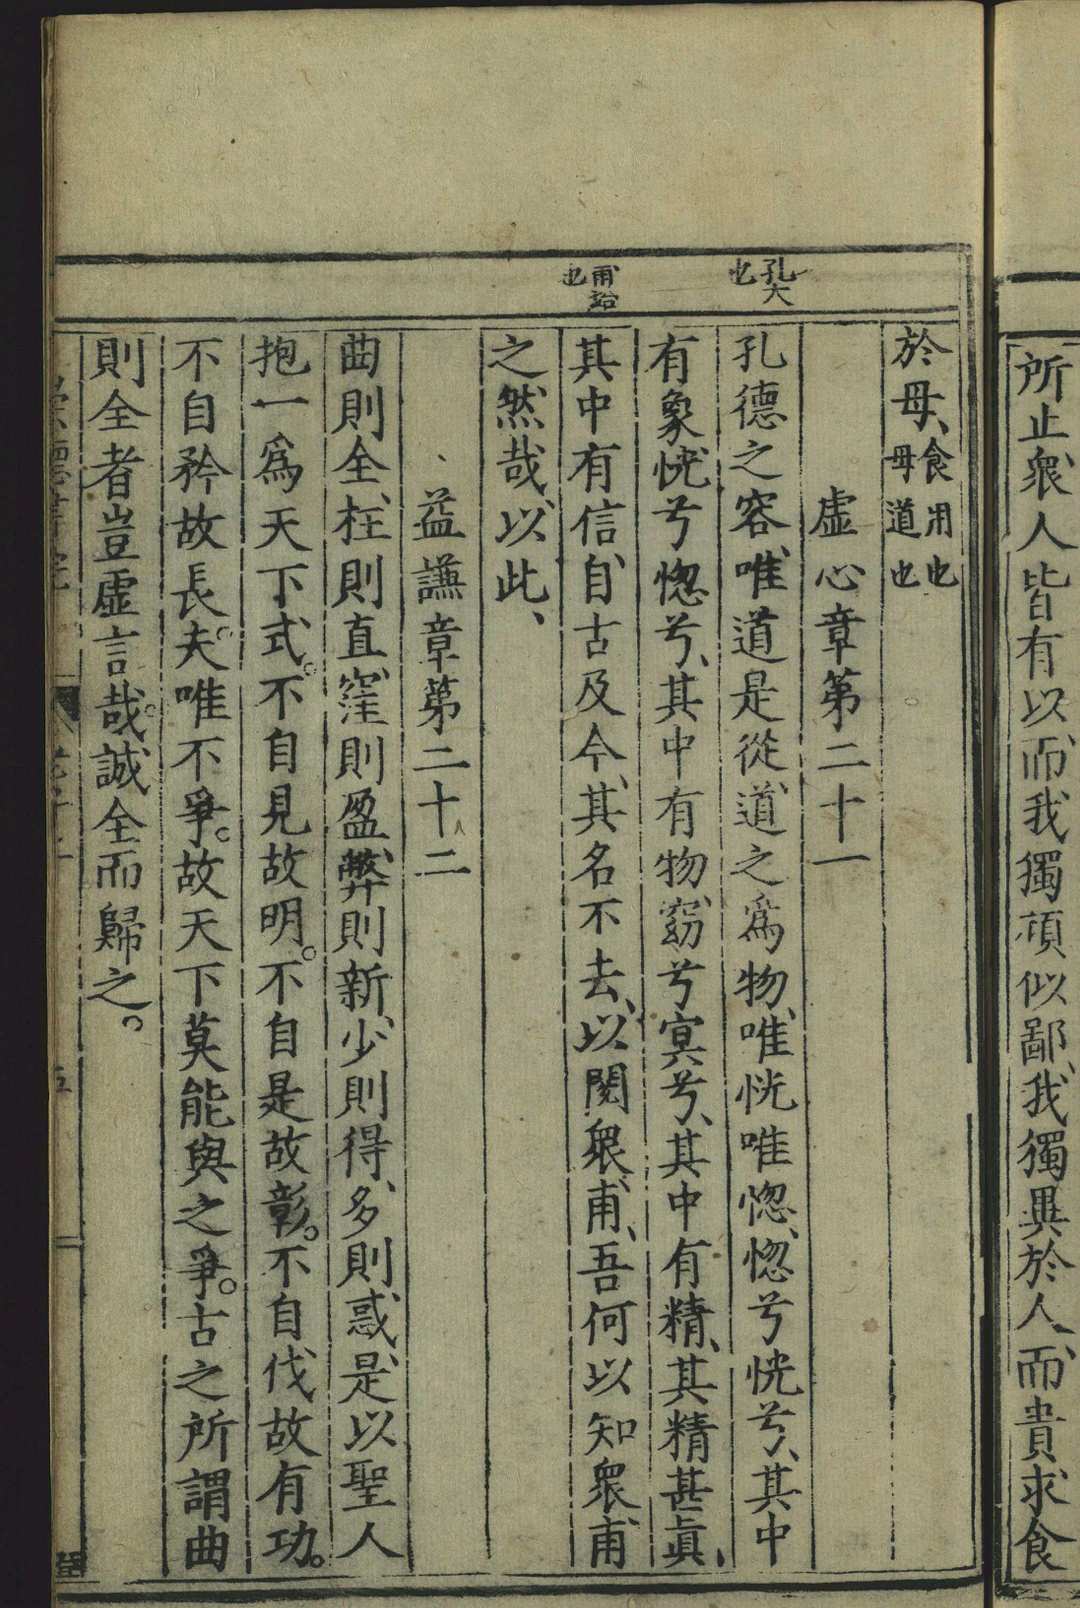 所止、衆人皆有以、而我獨頑似鄙、我獨異於人、而貴求食
於母、食用也母道也
虛心章第二十一
孔大也
孔德之容、唯道是從、道之爲物、唯恍唯惚、惚兮恍兮、其中
有象、恍兮惚兮、其中有物、窈兮冥兮、其中有精、其精甚眞、
甫始也
其中有信、自古及今、其名不去、以閱衆甫、吾何以知衆甫
之然哉、以此、
益謙章第二十二
曲則全、枉則直、窪則盈、弊則新、少則得、多則惑、是以聖人
抱一爲天下式。不自見故明。不自是故彰。不自伐故有功。
不自矜故長。夫唯不爭。故天下莫能與之爭。古之所謂曲
則全者豈虛言哉。誠全而歸之。